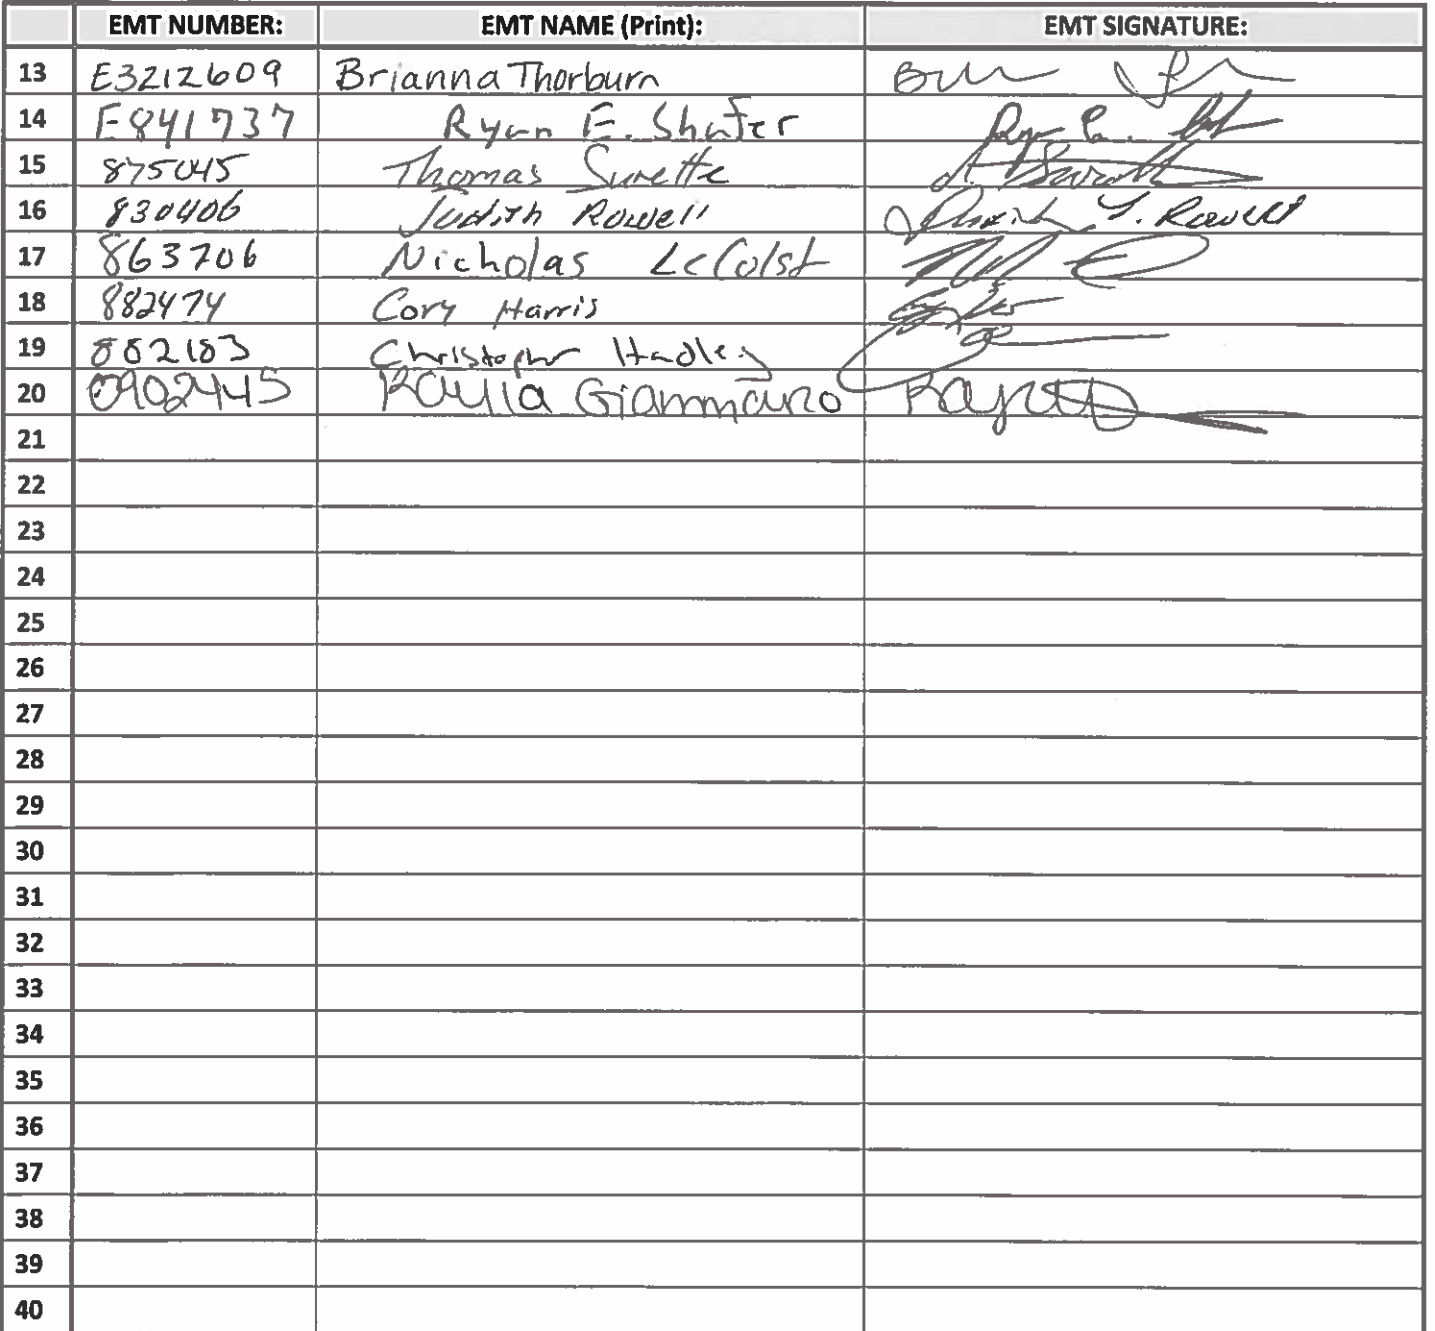 EMT NUMBER: EMT NAME (Print): EMT SIGNATURE:
13 E3212609 Brianna Thorburn
14 E841737 Ryan E. Shafer
15 875045 Thomas Surette
16 830406 Judith Rowell Judith Y. Rowell
17 863706 Nicholas
18 882474 Cory Harris
19 882183 Christopher Hadley
20 0902445 Kaylla Giammarco
21
22
23
24
25
26
27
28
29
30
31
32
33
34
35
36
37
38
39
40